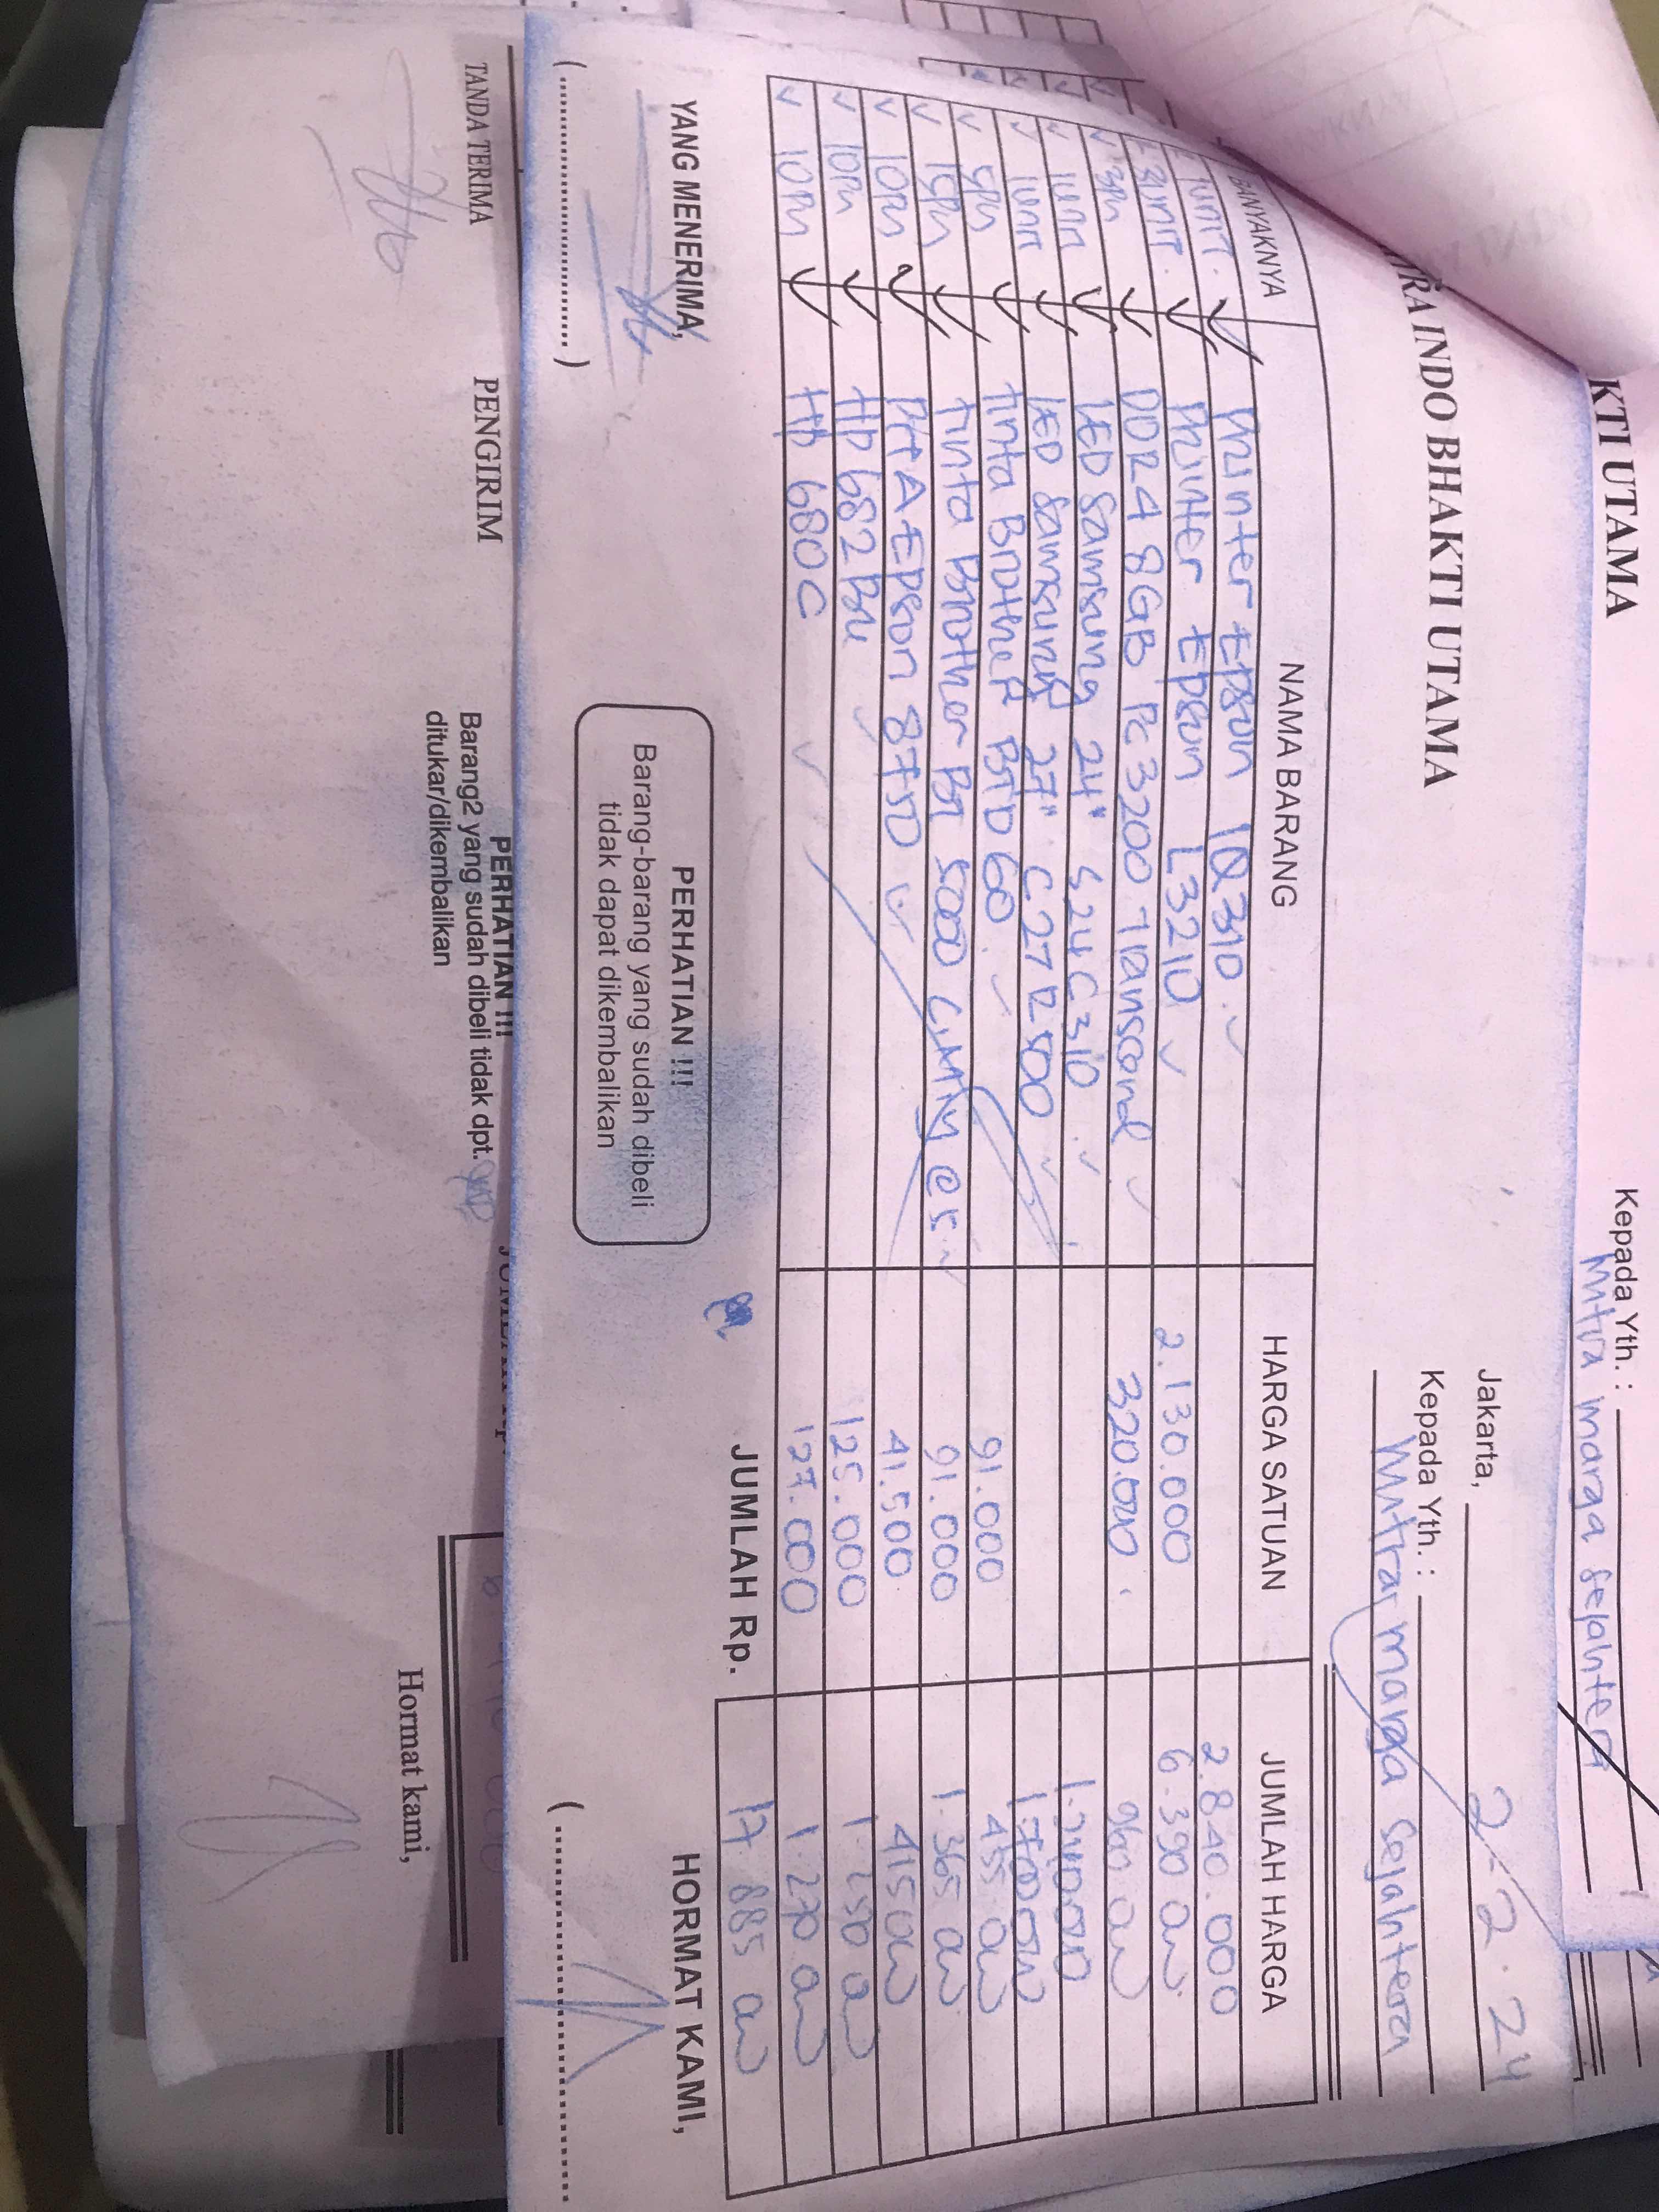 KTI UTAMA
Kepada Yth. :
Mitra marga sejahtera
RA INDO BHAKTI UTAMA
Jakarta, 2-2-24
Kepada Yth. :
Mitra marga sejahtera
BANYAKNYA NAMA BARANG HARGA SATUAN JUMLAH HARGA
1 unit. Printer Epson LQ310 2.840.000
3 unit. Printer Epson L3210 2.130.000 6.390
3 pcs DDR4 8GB PC 3200 Transcend 320.000 960
1 unit LED Samsung 24" S24C310
1 unit LED Samsung 27" C27R500 1.700.000
5 pcs tinta Brother BTD 60 91.000 455
15 pcs tinta Brother BT 5000 C,M,Y @ 5 91.000 1.365
10 pcs PITA Epson 8750 41.500 415
10 pcs HP 682 125.000 1.250
10 pcs HP 680 C 127.000 1.270
JUMLAH Rp. 17.885
YANG MENERIMA,
PERHATIAN !!!
Barang-barang yang sudah dibeli
tidak dapat dikembalikan
HORMAT KAMI,
(........................) (........................)
TANDA TERIMA PENGIRIM
PERHATIAN !!!
Barang2 yang sudah dibeli tidak dpt.
ditukar/dikembalikan
Hormat kami,